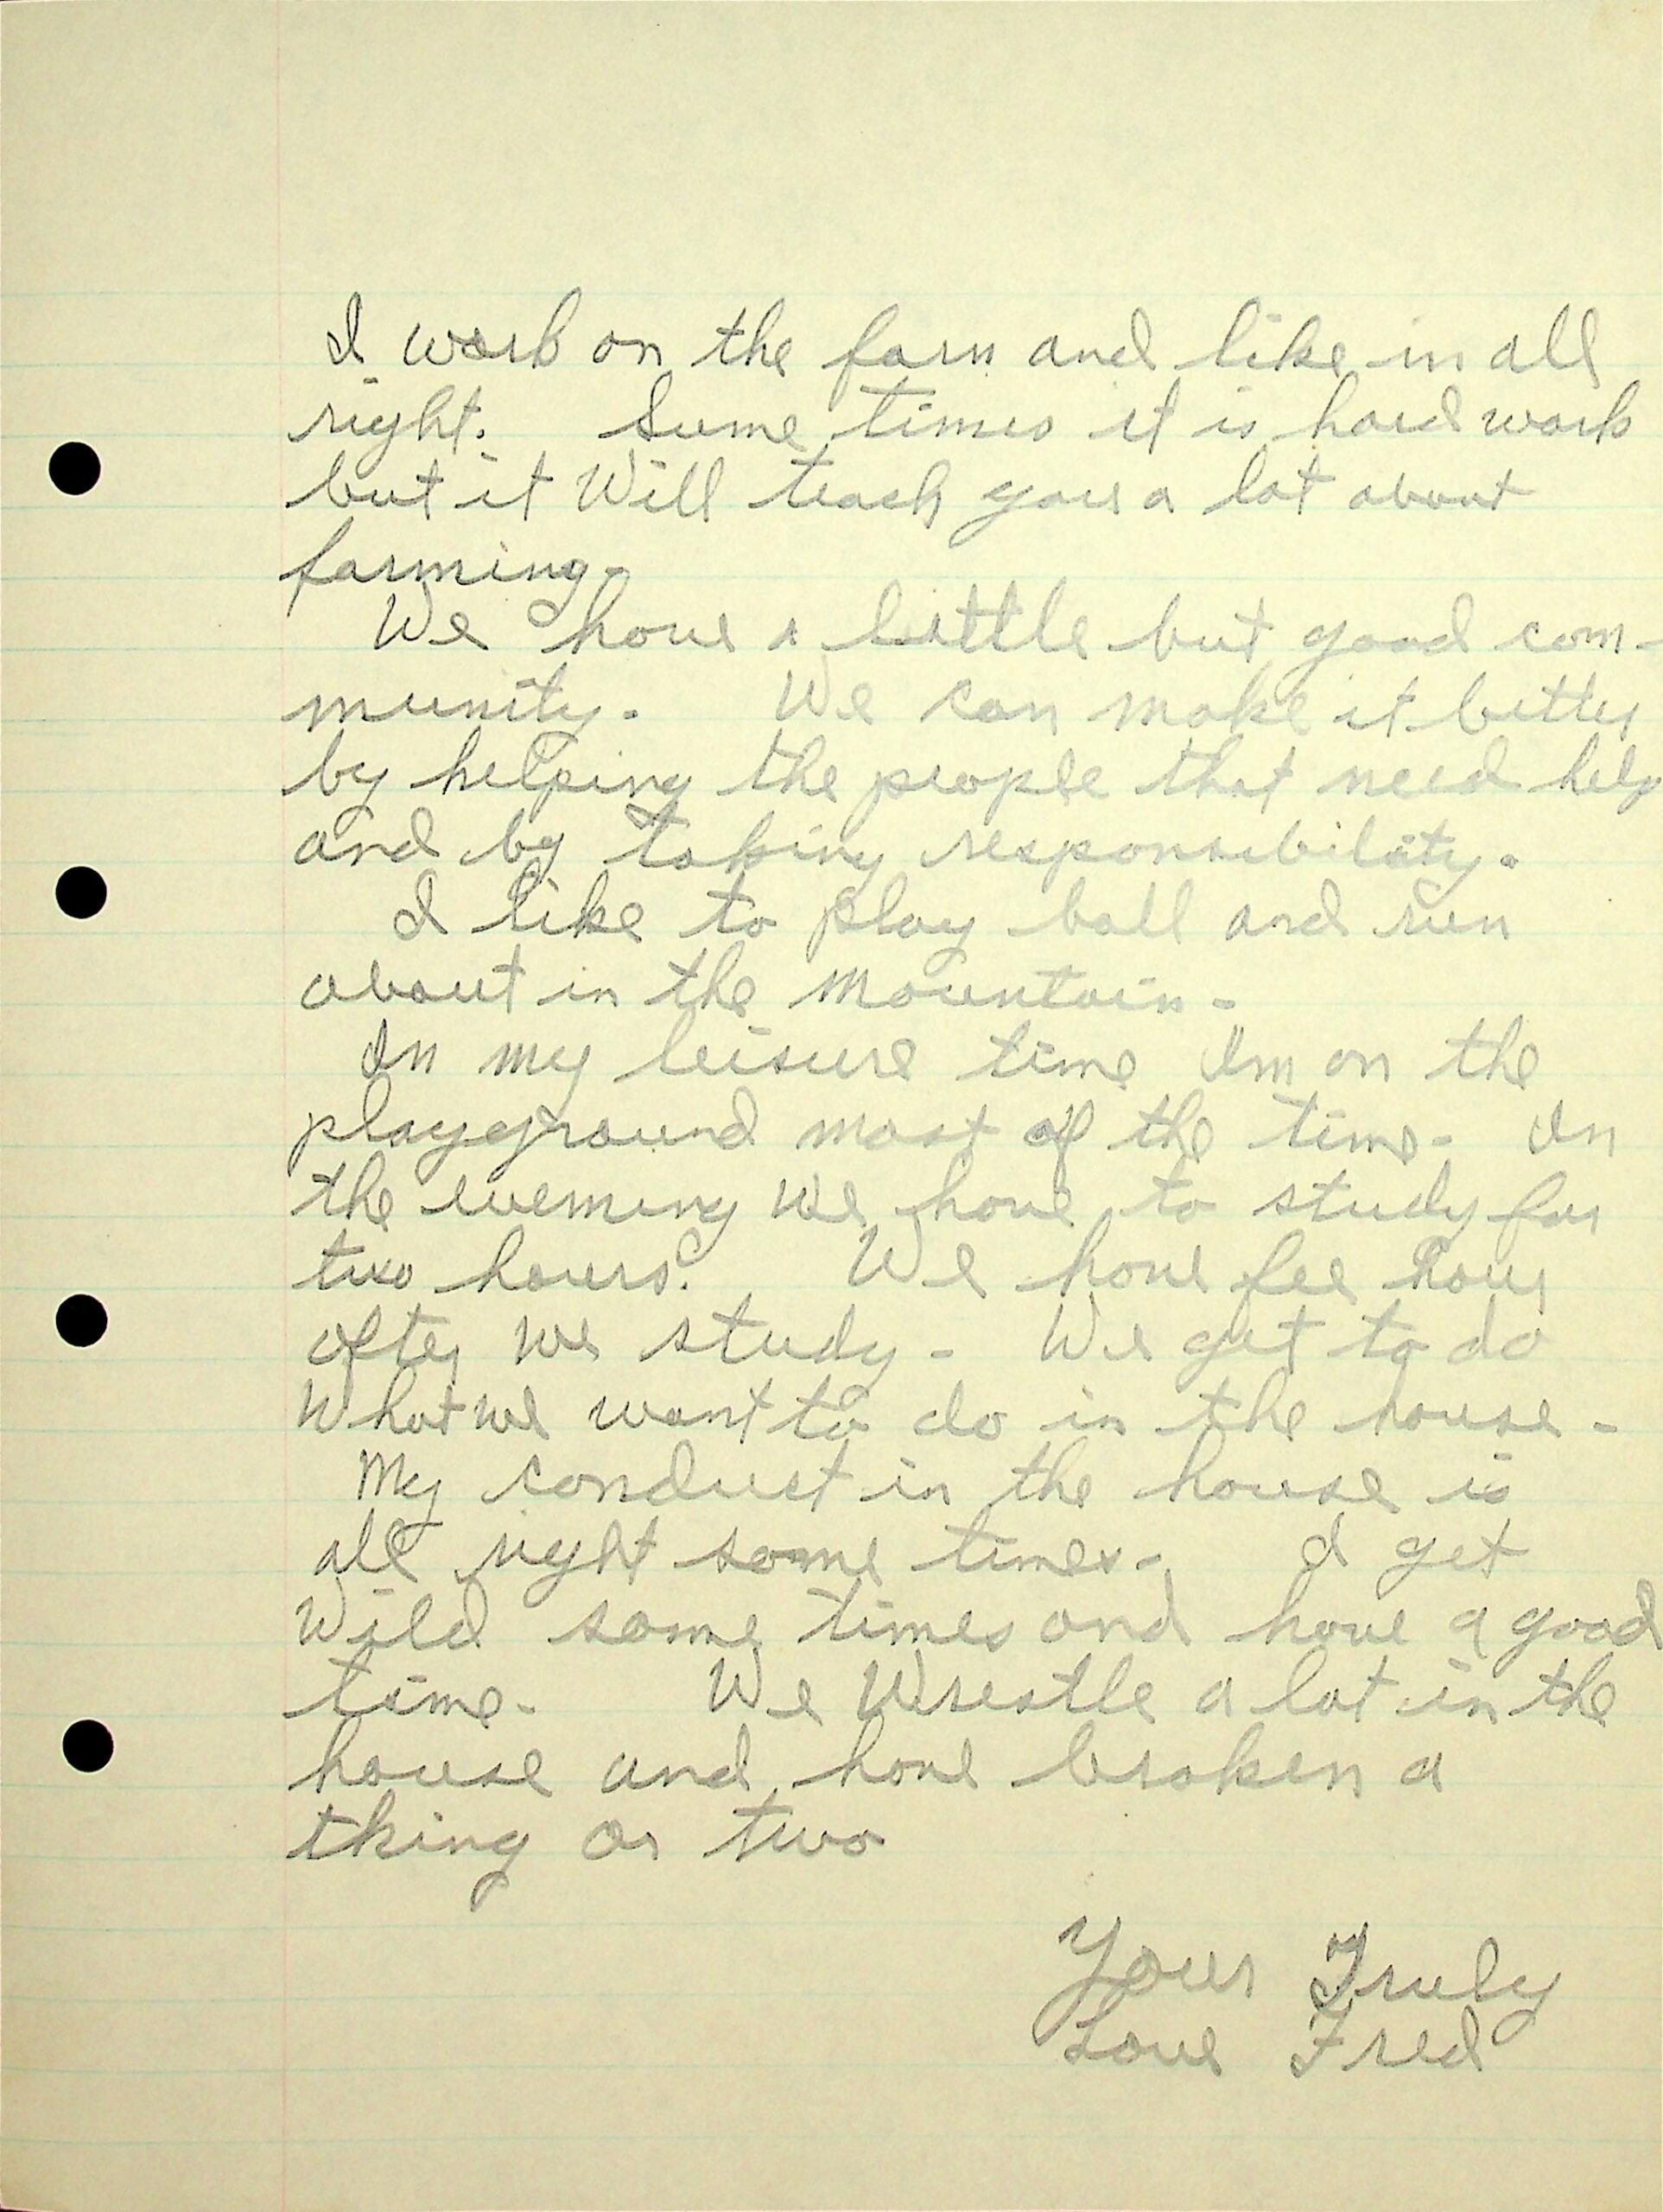 I work on the farm and like in all
right. Some times it is hard work
but it Will teach you a lot about
farming.
We have a little but good com-
munity. We can make it better
by helping the people that need help
and by taking responsibility.
I like to play ball and run
about in the mountain.
In my leisure time Im on the
playground most of the time. In
the evening we have to study for
two hours. We have fee hour
after we study. We get to do
What we want to do in the house.
My conduct in the house is
all right some times. I get
Wild some times and have a good
time. We Wrestle a lot in the
house and have broken a
thing or two
Your Truly
Love Fred